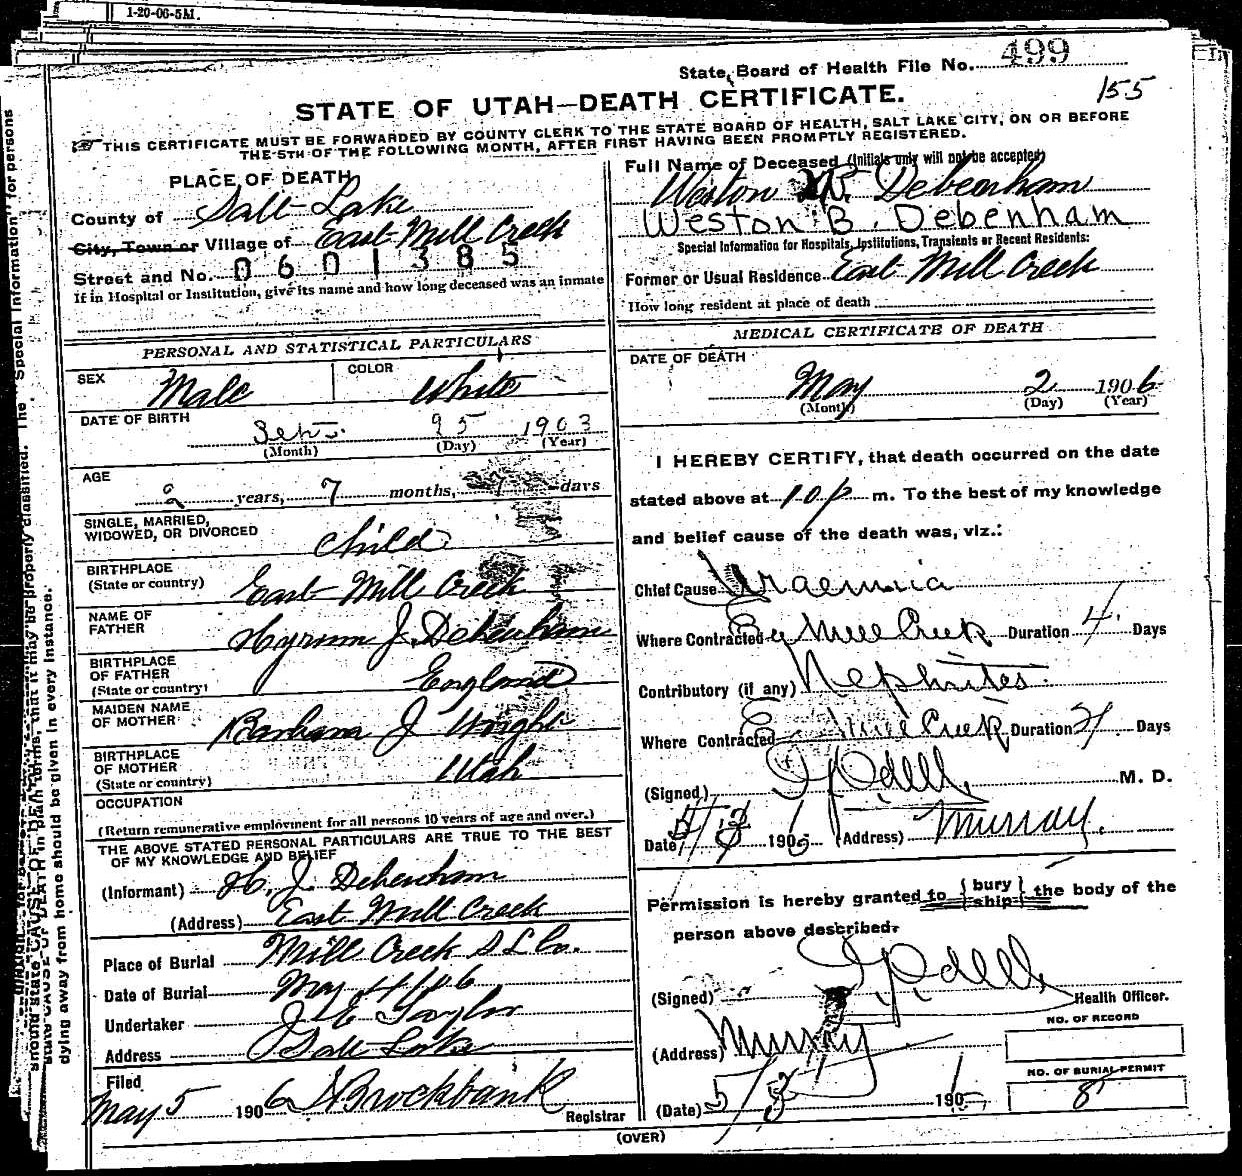 1-20-06-5M.
State Board of Health File No. 499
155
STATE OF UTAH—DEATH CERTIFICATE.
THIS CERTIFICATE MUST BE FORWARDED BY COUNTY CLERK TO THE STATE BOARD OF HEALTH, SALT LAKE CITY, ON OR BEFORE
THE 5TH OF THE FOLLOWING MONTH, AFTER FIRST HAVING BEEN PROMPTLY REGISTERED.
PLACE OF DEATH
County of Salt Lake
City, Town or Village of East Mill Creek
Street and No. 0601385
If in Hospital or Institution, give its name and how long deceased was an inmate
Full Name of Deceased (Initials only will not be accepted)
Weston B. Debenham
Weston B. Debenham
Special Information for Hospitals, Institutions, Transients or Recent Residents:
Former or Usual Residence East Mill Creek
How long resident at place of death
PERSONAL AND STATISTICAL PARTICULARS
SEX Male
COLOR White
DATE OF BIRTH
Sept. 25 1903
(Month) (Day) (Year)
AGE
2 years, 7 months, 7 days
SINGLE, MARRIED,
WIDOWED, OR DIVORCED Child
BIRTHPLACE
(State or country) East Mill Creek
NAME OF
FATHER Hyrum J. Debenham
BIRTHPLACE
OF FATHER
(State or country) England
MAIDEN NAME
OF MOTHER Barbara J Wright
BIRTHPLACE
OF MOTHER
(State or country) Utah
OCCUPATION
(Return remunerative employment for all persons 10 years of age and over.)
THE ABOVE STATED PERSONAL PARTICULARS ARE TRUE TO THE BEST
OF MY KNOWLEDGE AND BELIEF
(Informant) H. J. Debenham
(Address) East Mill Creek
Place of Burial Mill Creek S L Co.
Date of Burial May 4 1906
Undertaker J E Taylor
Address Salt Lake
Filed
May 5 1906 Brockbank
Registrar
MEDICAL CERTIFICATE OF DEATH
DATE OF DEATH
May 2 1906
(Month) (Day) (Year)
I HEREBY CERTIFY, that death occurred on the date
stated above at 10 p m. To the best of my knowledge
and belief cause of the death was, viz.:
Chief Cause Uraemia
Where Contracted E Mill Creek Duration 4 Days
Contributory (if any) Nephrites
Where Contracted E Mill Creek Duration 21 Days
(Signed) M. D.
Date 5/3 1906 (Address) Murray.
Permission is hereby granted to { bury ship } the body of the
person above described.
(Signed) Health Officer.
(Address) Murray
(Date) 5/3 190
NO. OF RECORD
NO. OF BURIAL PERMIT
8
(OVER)
dying away from home should be given in every instance.
"Special Information" for persons